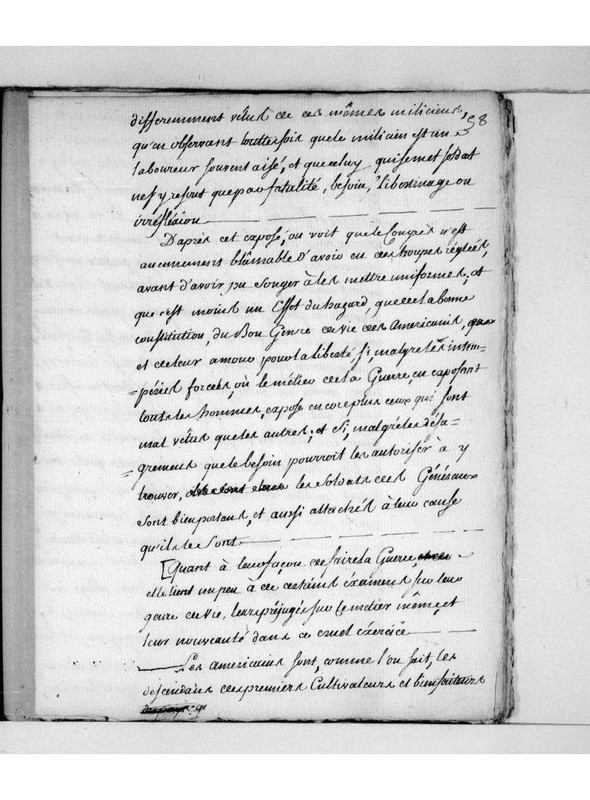 differemment vétus de ces mêmes miliciens, 58
qu'en observant touttefois que le milicien est un
laboureur souvent aisé, et que celuy qui se met soldat
ne s'y resout que par fatalité, besoin, libertinage ou
irréflexion
D'après cet exposé, on voit que le Congrès n'est
aucunement blâmable d'avoir eu des troupes réglées,
avant d'avoir pu songer à les mettre uniformes; et
que c'est moins un Effet du hazard, que de la bonne
constitution, du Bon Genre de vie des Americains,
et de leur amour pour la liberté, si, malgré les intem-
=péries forcées, où le métier de la Guerre, en exposant
tous les hommes, expose encore plus ceux qui sont
mal vétus que les autres; et si, malgré les désa-
=gremens que le besoin pourroit les autoriser à y
trouver, les soldats des Généraux
sont bien portans, et aussi attachés à leur cause
qu'ils le sont
[Quant à leur façon de faire la Guerre,
elle tient un peu à de certains examens sur leur
genre de vie, leurs préjugés sur le métier même, et
leur nouveauté dans ce cruel éxercice
Les americains sont, comme l'on sait, les
descendans des premiers Cultivateurs et bienfaiteurs